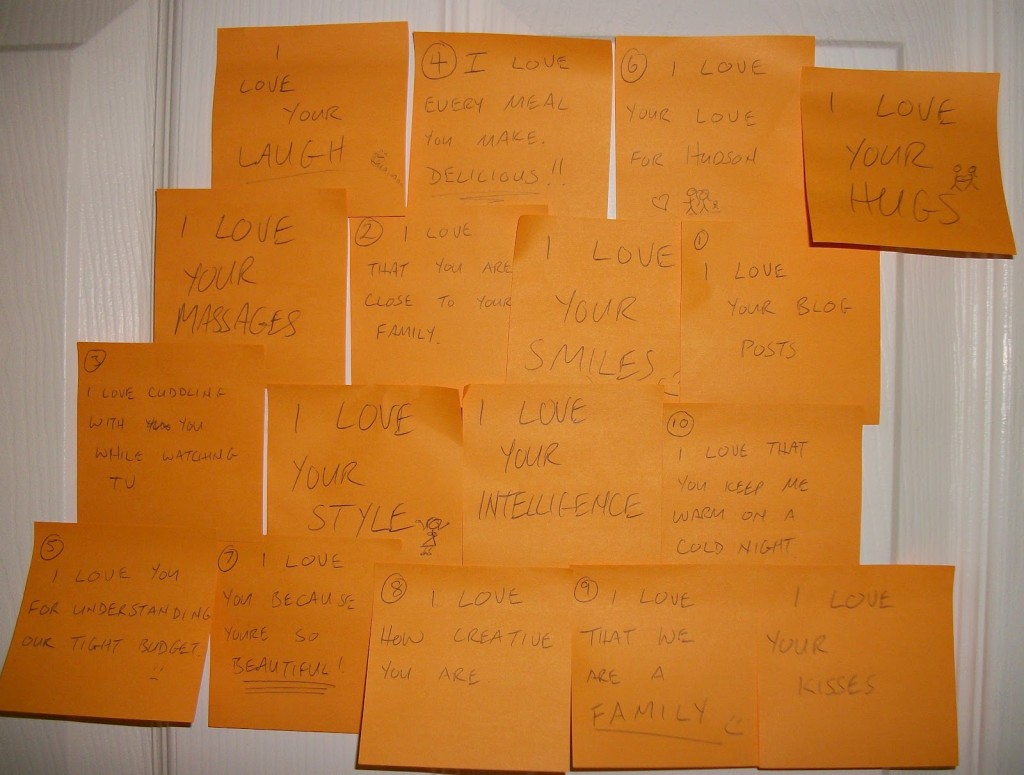 I
LOVE
YOUR
LAUGH
4 I LOVE
EVERY MEAL
YOU MAKE.
DELICIOUS!!
6 I LOVE
YOUR LOVE
FOR HUDSON
I LOVE
YOUR
HUGS
I LOVE
YOUR
MASSAGES
2 I LOVE
THAT YOU ARE
CLOSE TO YOUR
FAMILY.
I LOVE
YOUR
SMILES
1
I LOVE
YOUR BLOG
POSTS
3
I LOVE CUDDLING
WITH YOU
WHILE WATCHING
TV
I LOVE
YOUR
STYLE
I LOVE
YOUR
INTELLIGENCE
10
I LOVE THAT
YOU KEEP ME
WARM ON A
COLD NIGHT
5
I LOVE YOU
FOR UNDERSTANDING
OUR TIGHT BUDGET.
7 I LOVE
YOU BECAUSE
YOU'RE SO
BEAUTIFUL!
8 I LOVE
HOW CREATIVE
YOU ARE
9 I LOVE
THAT WE
ARE A
FAMILY
I LOVE
YOUR
KISSES